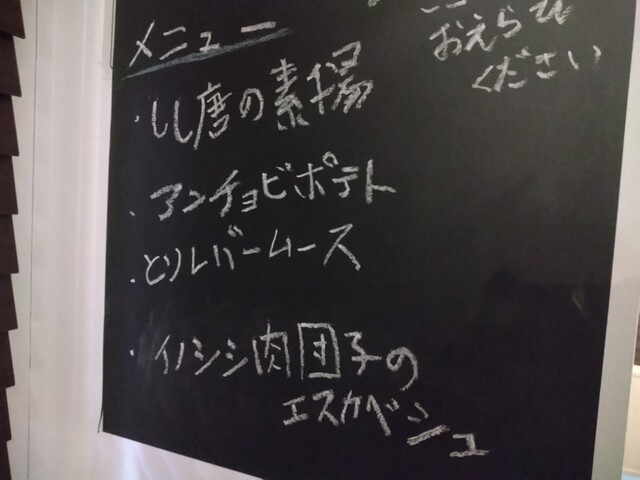 メニュー
おえらび
ください
・しし唐の素揚
・アンチョビポテト
・とりレバームース
・イノシシ肉団子の
エスカベシュ